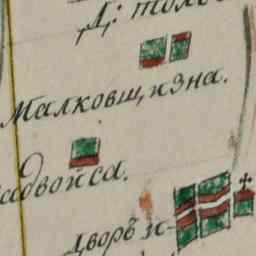 Д: толо
Малковщизна.
адвойса.
дворъ